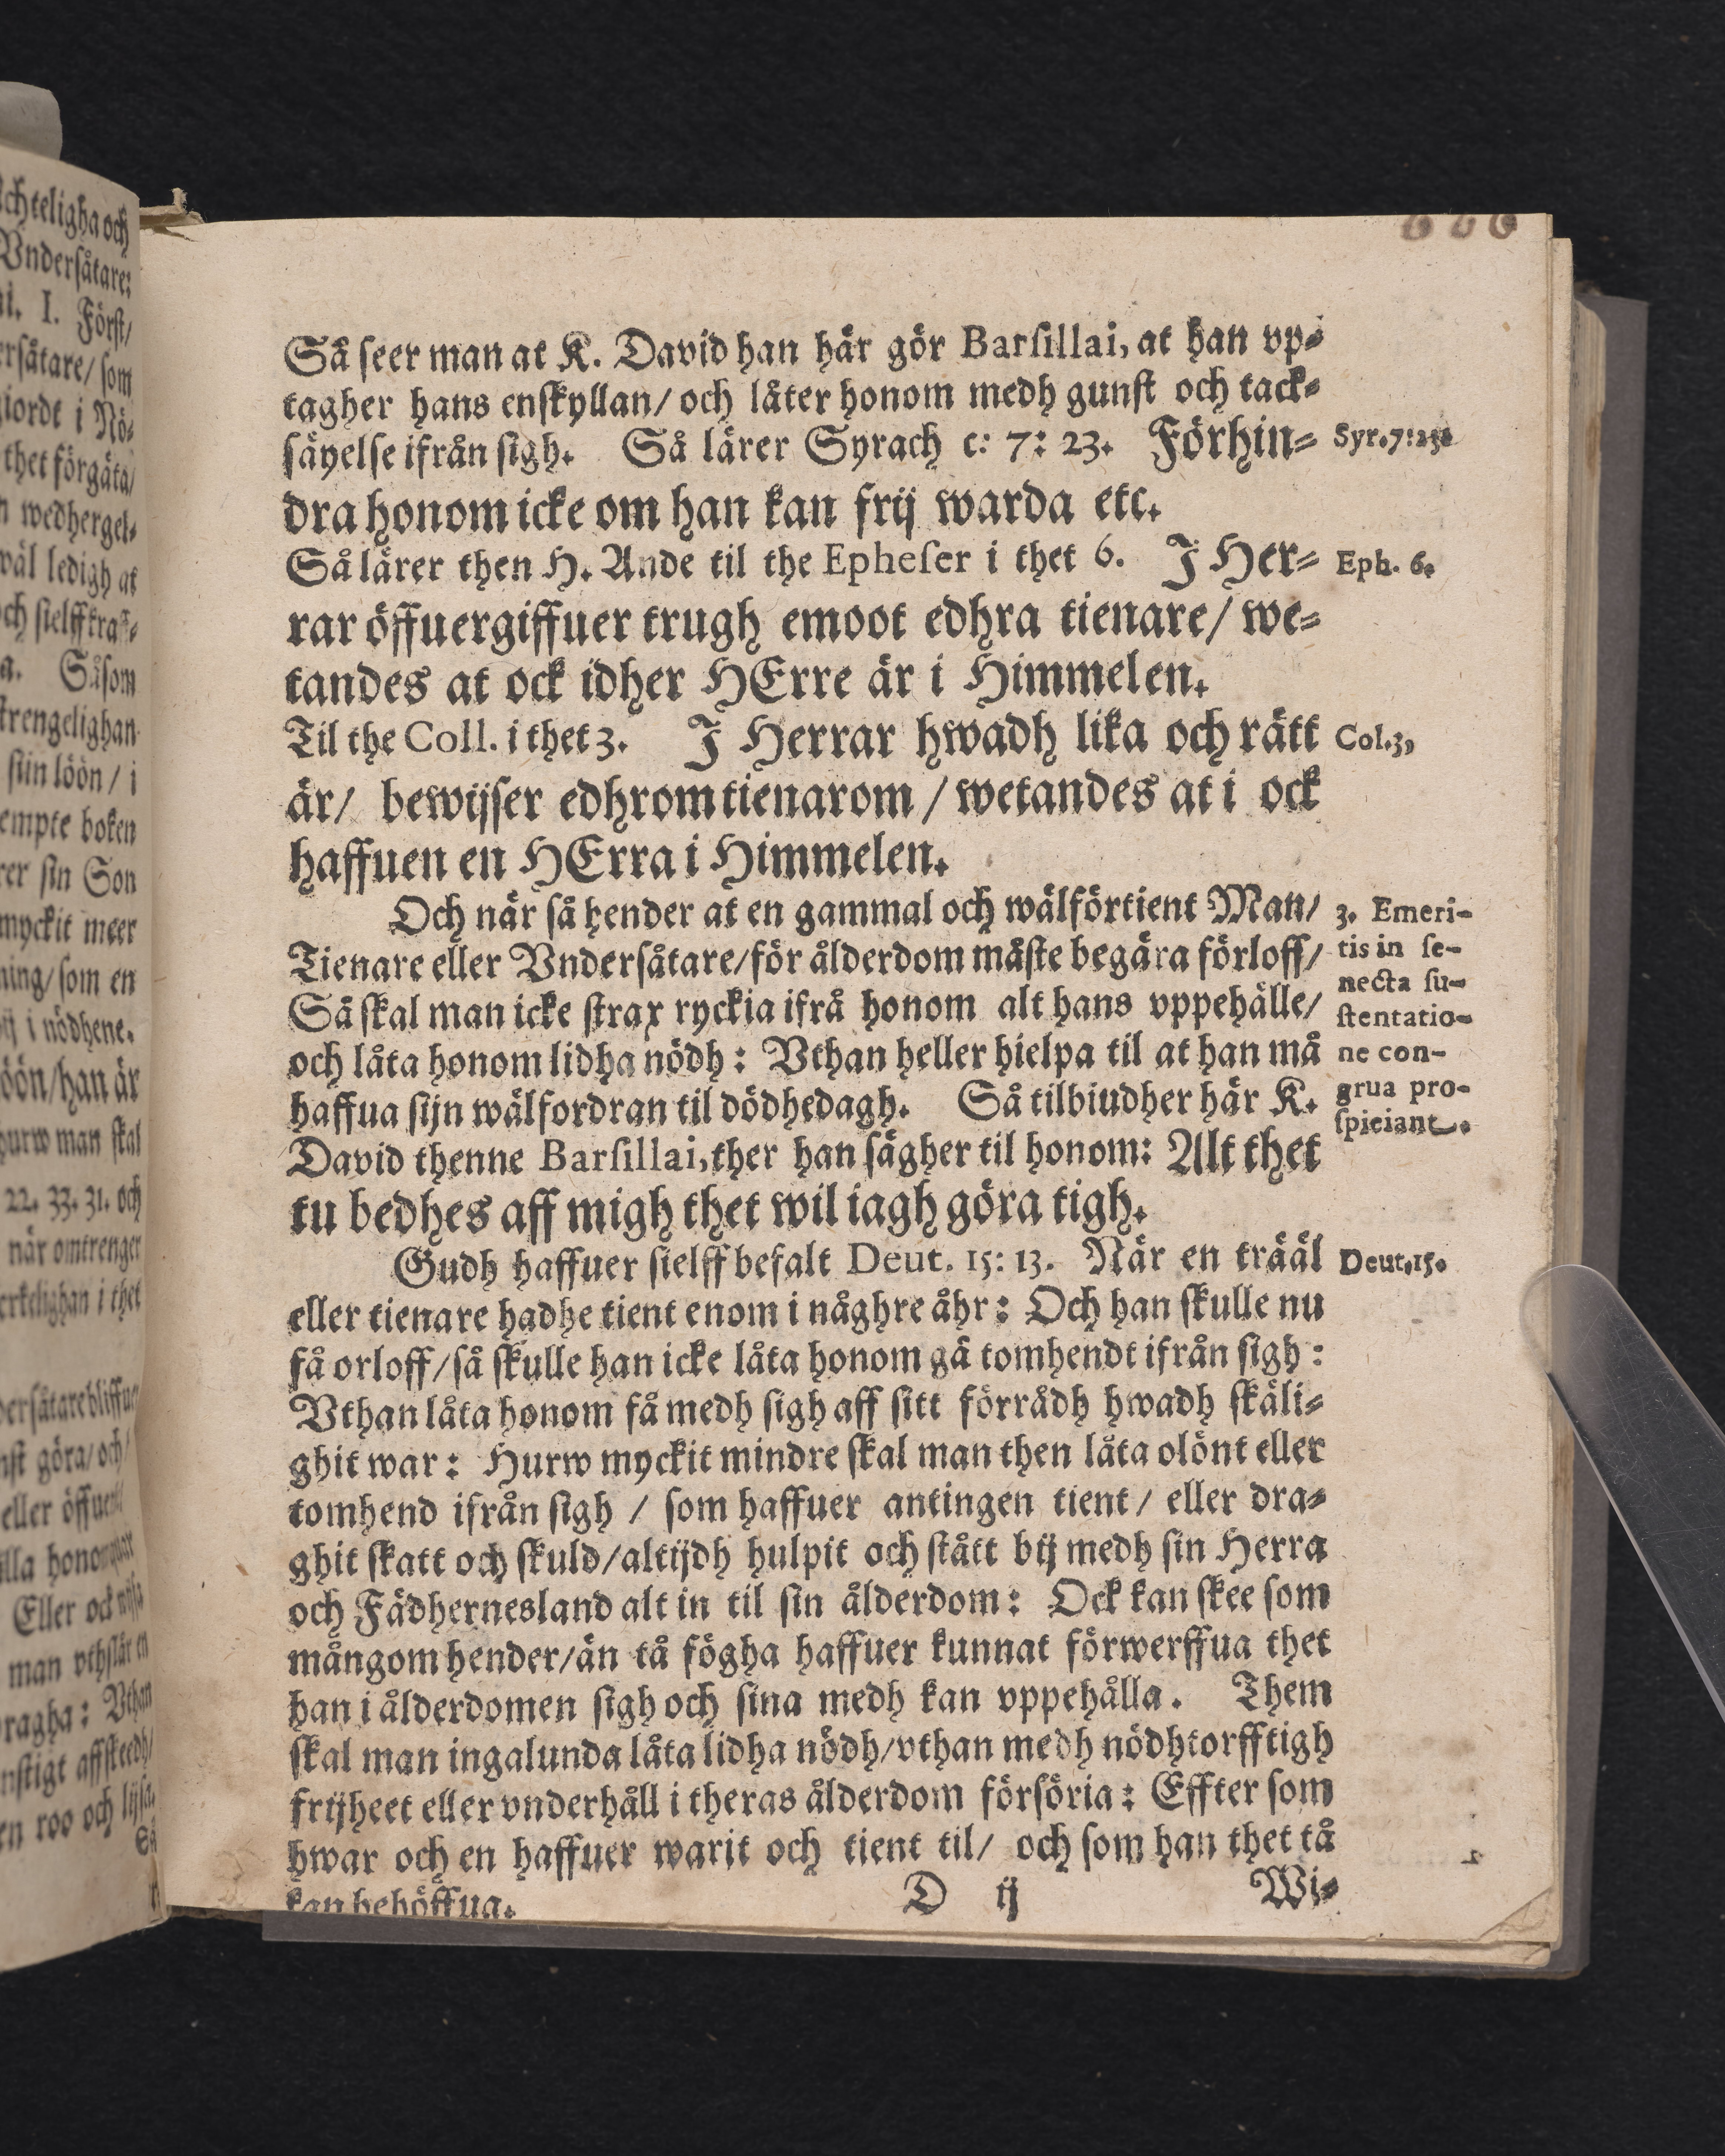 Så seer man at K. David han här gör Barsillai, at han vp-
tagher hans enskyllan/ och låter honom medh gunst och tack-
säyelse ifrån sigh. Så lärer Syrach c: 7: 23. Förhin-
Syr.7:23.
dra honom icke om han kan frij warda etc.
Så lärer then H. Ande til the Epheser i thet 6. J Her-
Eph. 6.
rar öffuergiffuer trugh emoot edhra tienare/ we-
tandes at ock idher HErre är i Himmelen.
Til the Coll. i thet 3. J Herrar hwadh lika och rätt
Col.3,
är/ bewijser edhrom tienarom / wetandes at i ock
haffuen en HErra i Himmelen.
Och när så hender at en gammal och wälförtient Man/
Tienare eller Vndersåtare/för ålderdom måste begära förloff/
Så skal man icke strax ryckia ifrå honom alt hans vppehälle/
och låta honom lidha nödh: Vthan heller hielpa til at han må
haffua sijn wälfordran til dödhedagh. Så tilbiudher här K.
David thenne Barsillai, ther han sägher til honom: Alt thet
3. Emeri-
tis in se-
necta su-
stentatio-
ne con-
grua pro-
spiciant.
tu bedhes aff migh thet wil iagh göra tigh.
Gudh haffuer sielff befalt Deut. 15: 13. När en trääl
Deut.15.
eller tienare hadhe tient enom i någhre åhr: Och han skulle nu
få orloff/så skulle han icke låta honom gå tomhendt ifrån sigh:
Vthan låta honom få medh sigh aff sitt förrådh hwadh skäli-
ghit war: Hurw myckit mindre skal man then låta olönt eller
tomhend ifrån sigh / som haffuer antingen tient / eller dra-
ghit skatt och skuld/altijdh hulpit och stått bij medh sin Herra
och Fädhernesland alt in til sin ålderdom: Ock kan skee som
mångom hender/än tå fögha haffuer kunnat förwerffua thet
han i ålderdomen sigh och sina medh kan vppehålla. Them
skal man ingalunda låta lidha nödh/vthan medh nödhtorfftigh
frijheet eller vnderhåll i theras ålderdom försöria: Effter som
hwar och en haffuer warit och tient til/ och som han thet tå
kan behöffua.
D ij
Wi-